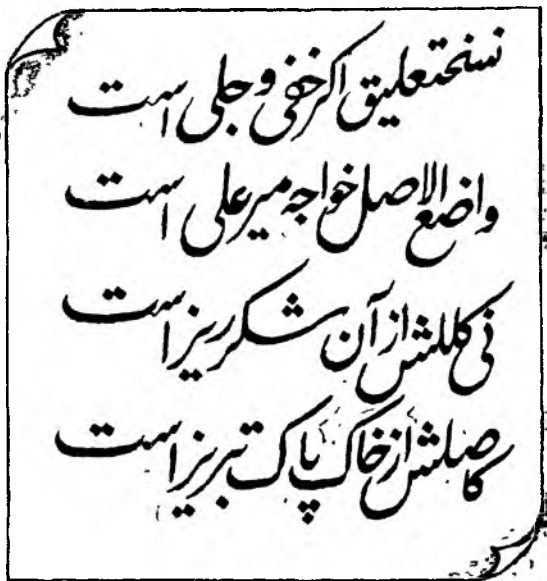 نسختعلیق اکر خفی و جلی است
واضع الاصل خواجه میر علی است
نی کلکش از آن شکر ریز است
کاصلش از خاک پاک تبریز است